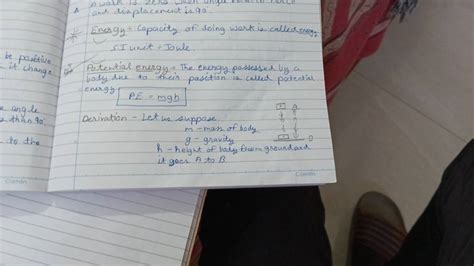 A work is zero when angle between force
and displacement is 90°
Energy - Capacity of doing work is called energy
S.I unit - Joule
Potential energy - The energy possessed by a
body due to their position is called potential
energy
PE = mgh
Derivation - Let us suppose
m - mass of body
g - gravity
h - height of body from ground
it goes A to B
A
B
be positive
it change
angle
than 90°
to the
Classmate
Classmate